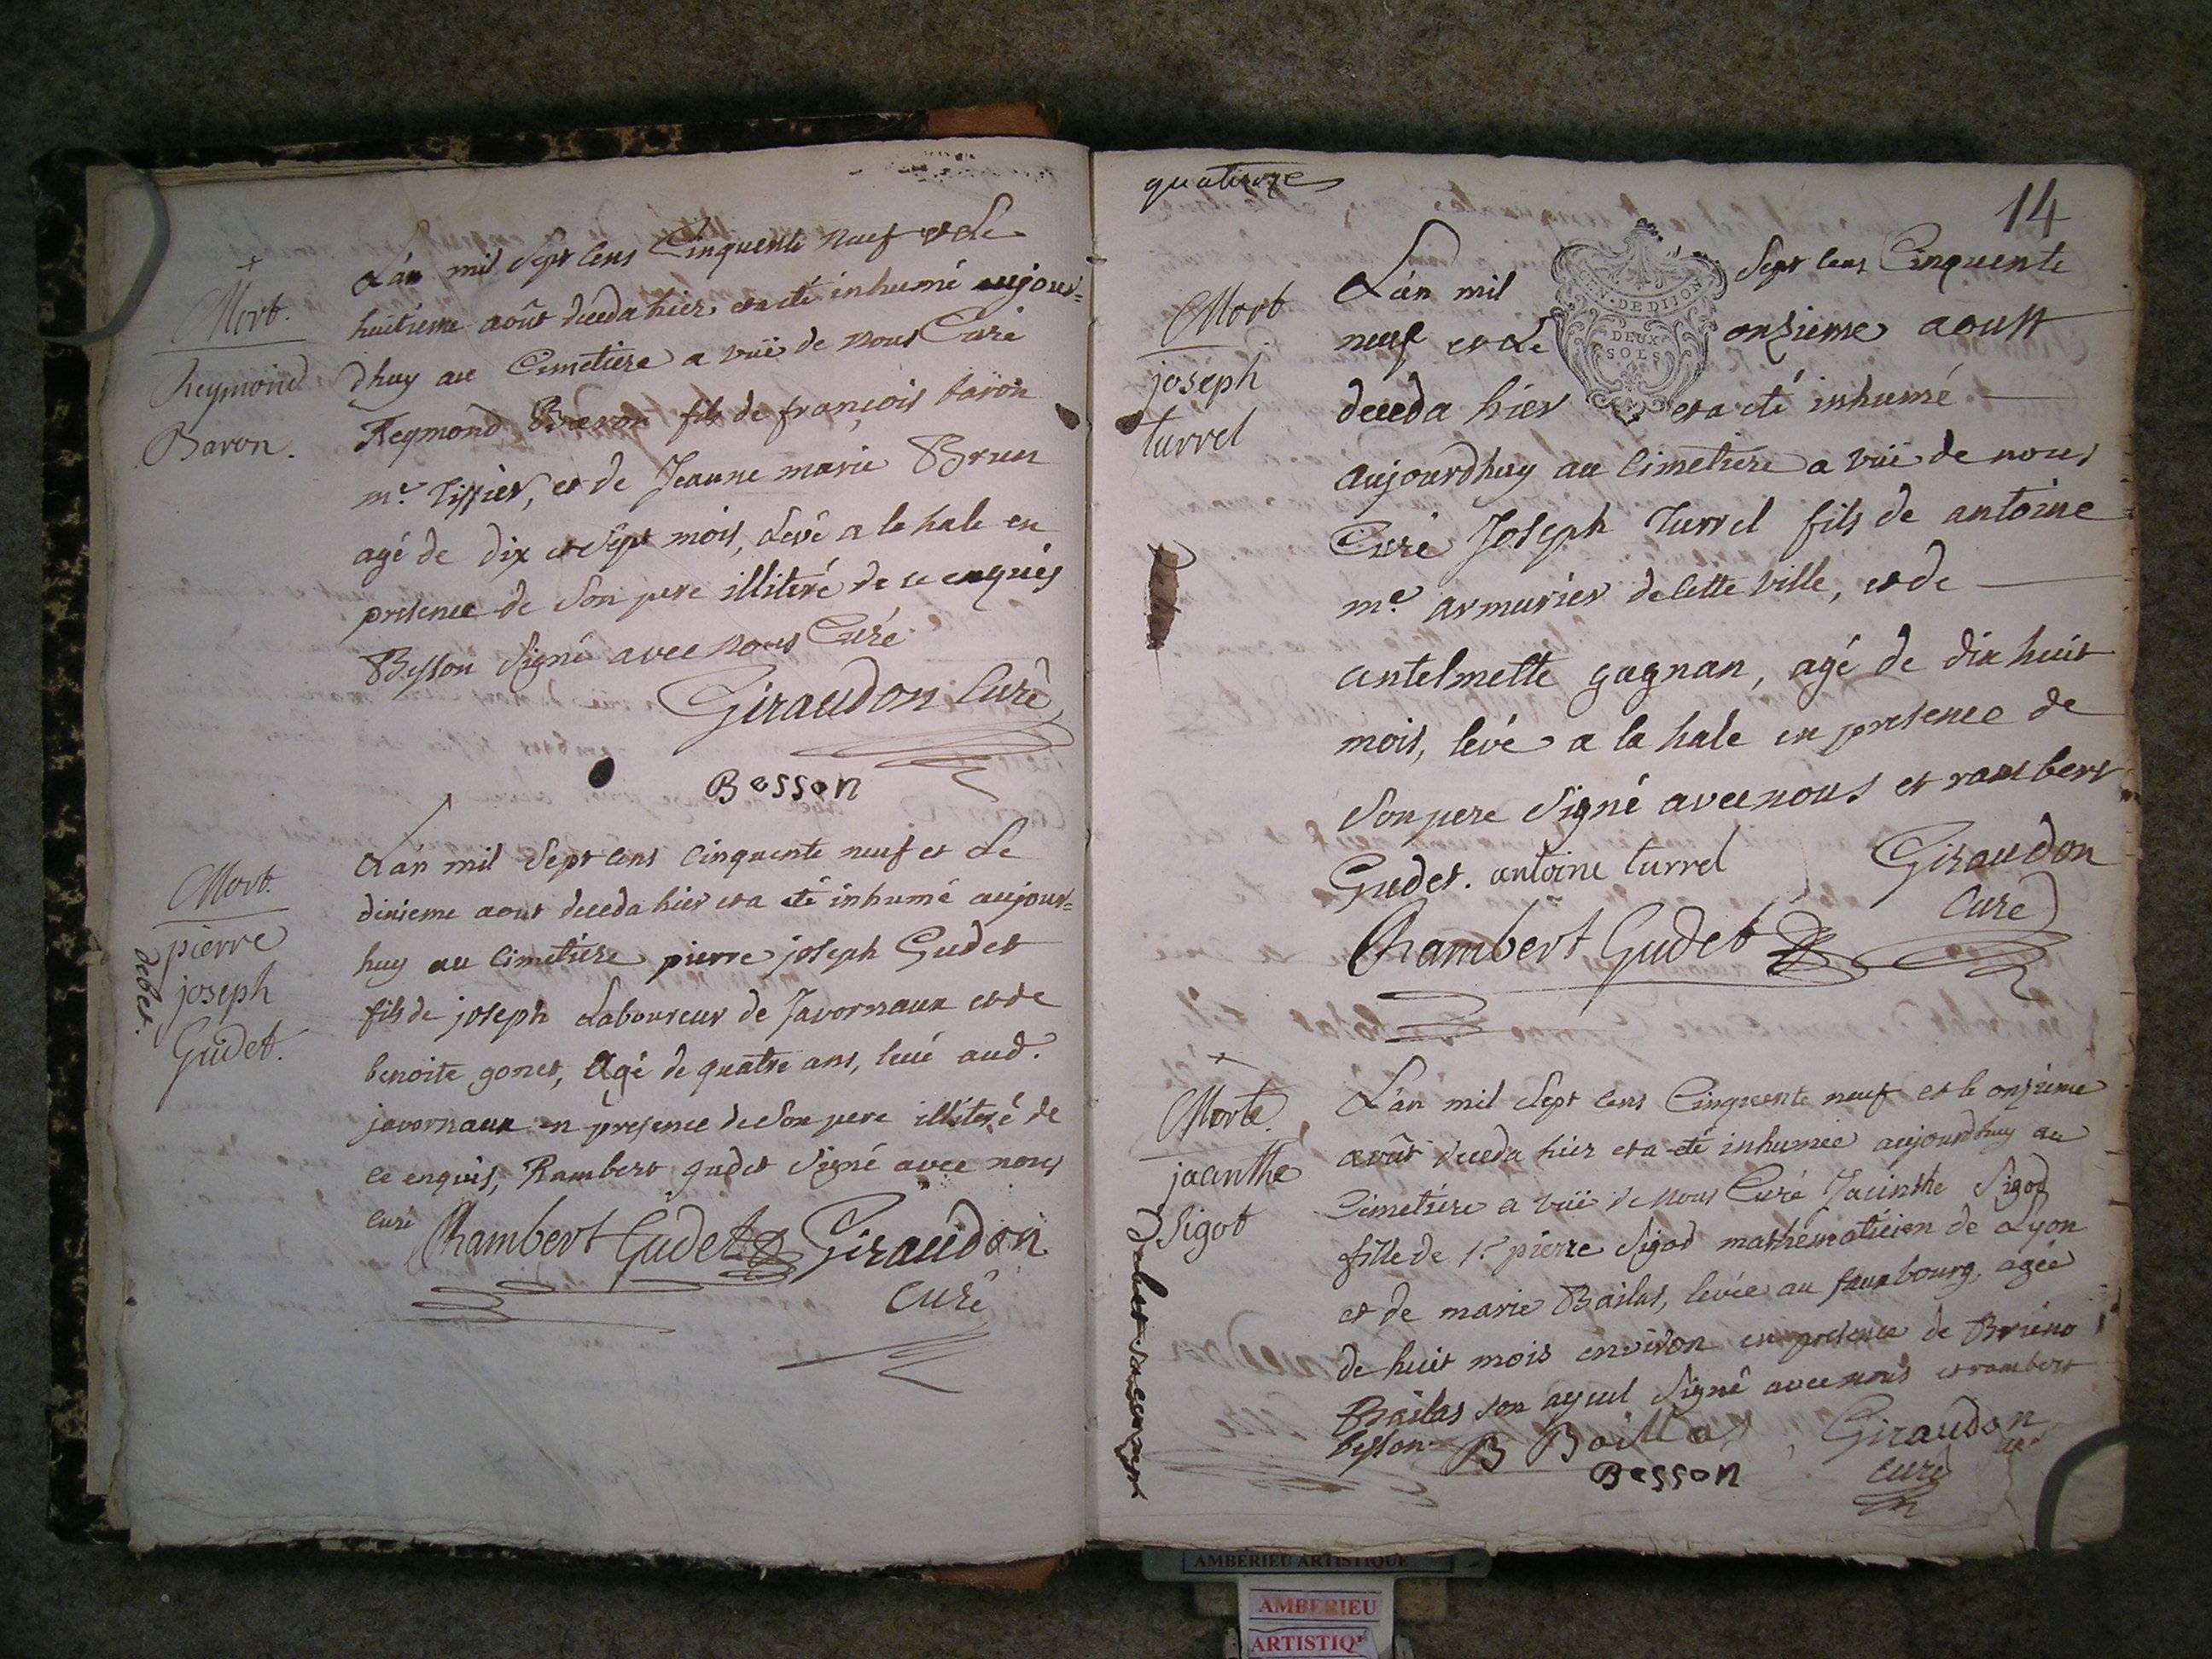 Mort.
Reymond
Baron.
L'an mil sept cens Cinquente neuf et le
huitieme août deceda hier et a eté inhumé aujour=
dhuy au Cimetiere a vuë de nous Curé
Reymond Baron fils de françois baron
me. Tissier, et de Jeanne marie Brun
agé de dix et sept mois, Levé a la hale en
presence de Son pere illiteré de ce enquis
Besson Signé avec nous Curé
Giraudon Curé
Besson
Mort.
pierre
joseph
Gudet.
debet.
L'an mil Sept cens cinquente neuf et Le
dixieme aout deceda hier et a eté inhumé aujour=
huy au Cimetiere pierre joseph Gudet
fils de joseph Laboureur de Javornaux et de
benoite gonet, Agé de quatre ans, levé aud.
javornaux en presence de Son pere illiteré de
ce enquis, Rambert gudet Signé avec nous
curé Rambert Gudet Giraudon
Curé
quatorze
14
Mort
joseph
turrel
L'an mil Sept cens Cinquente
neuf et Le onzieme aoust
EN. DE DIJON
DEUX
SOLS
deceda hier et a eté inhumé
aujourdhuy au Cimetiere a vuë de nous
Curé Joseph Turrel fils de antoine
me. armurier de cette ville, et de
antelmette gagnan, agé de dix huit
mois, levé a la hale en presence de
Son pere Signé avec nous et rambert
Gudet. antoine turrel Giraudon
Curé
Rambert Gudet
Morte.
jacinthe
Sigot
L'an mil Sept cens Cinquente neuf et le onzieme
août deceda hier et a eté inhumée aujourdhuy au
Cimetiere a vuë de nous Curé Jacinthe Sigod
fille de Sr. pierre Sigod mathematicien de Lyon
et de marie Bailas, levée au fauxbourg, agée
de huit mois environ en presence de
Bailas son ayeul Signé avec nous et rambert
besson. B Baillas Giraudon
Besson Curé
AMBERIEU ARTISTIQUE
AMBERIEU
ARTISTIQUE